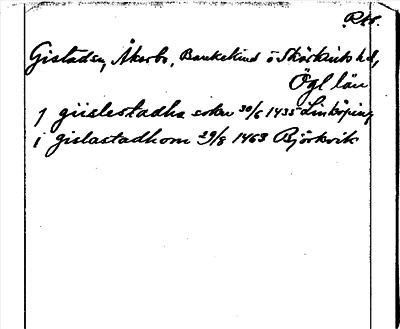 Gistadsn, Åkerbo, Bankekind o Skärkinds hd,
Ögl län
j giislestadha sokn 30/6 1435 Linköping
i gislastadhom 29/8 1463 Björkvik